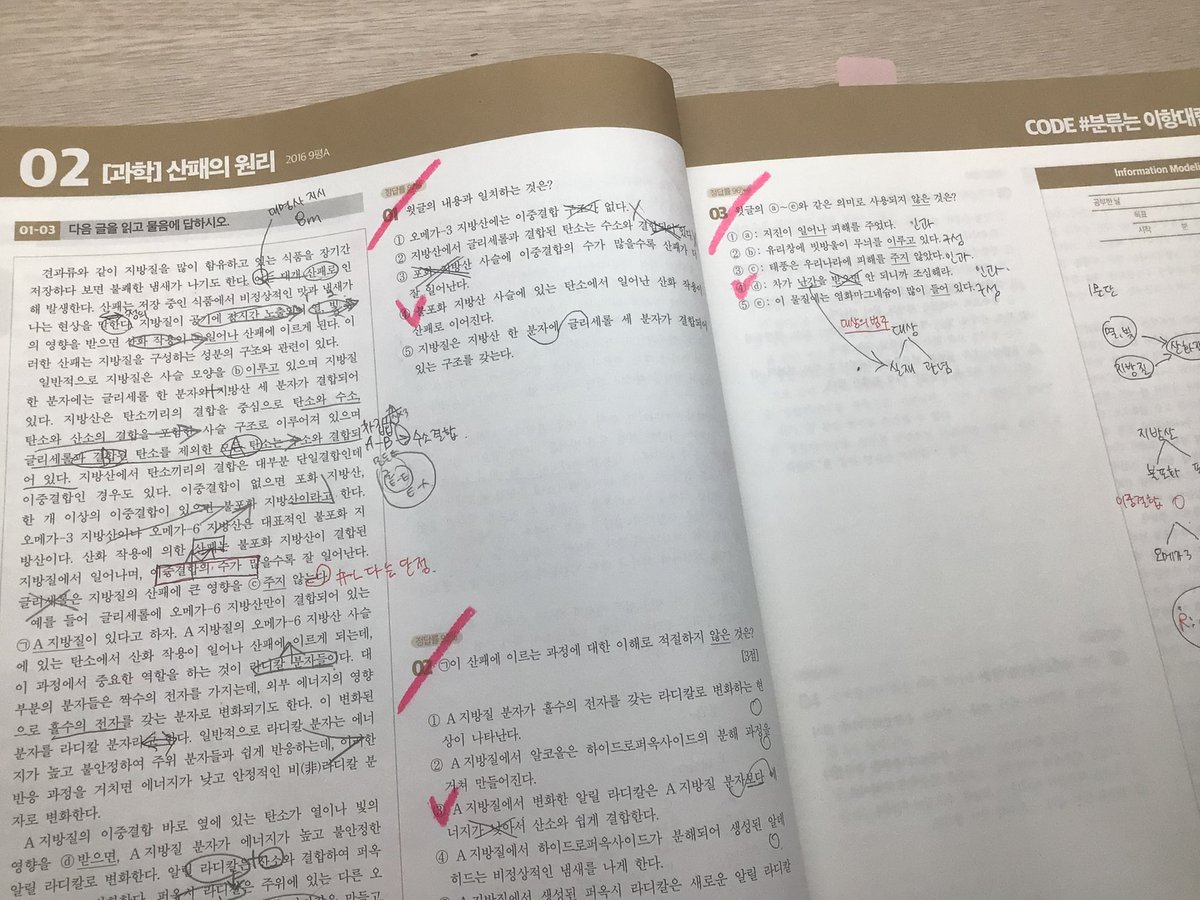 02 [과학] 산패의 원리 2016 9평A
8m
01-03 다음 글을 읽고 물음에 답하시오.
견과류와 같이 지방질을 많이 함유하고 있는 식품을 장기간
저장하다 보면 불쾌한 냄새가 나기도 한다. 대개 산패로 인
해 발생한다. 산패는 저장 중인 식품에서 비정상적인 맛과 냄새가
나는 현상을 말한다. 지방질이 공기에 장시간 노출되어 열, 빛 등
의 영향을 받으면 산화 작용이 일어나 산패에 이르게 된다. 이
러한 산패는 지방질을 구성하는 성분의 구조와 관련이 있다.
일반적으로 지방질은 사슬 모양을 ⓑ이루고 있으며 지방질
한 분자에는 글리세롤 한 분자와 지방산 세 분자가 결합되어
있다. 지방산은 탄소끼리의 결합을 중심으로 탄소와 수소,
탄소와 산소의 결합을 포함한 사슬 구조로 이루어져 있으며
글리세롤과 결합된 탄소를 제외한 모든 탄소는 수소와 결합되
어 있다. 지방산에서 탄소끼리의 결합은 대부분 단일결합인데
이중결합인 경우도 있다. 이중결합이 없으면 포화 지방산,
한 개 이상의 이중결합이 있으면 불포화 지방산이라고 한다.
오메가-3 지방산이나 오메가-6 지방산은 대표적인 불포화 지
방산이다. 산화 작용에 의한 산패는 불포화 지방산이 결합된
지방질에서 일어나며, 이중결합의 수가 많을수록 잘 일어난다.
글리세롤은 지방질의 산패에 큰 영향을 ⓒ주지 않는다.
예를 들어 글리세롤에 오메가-6 지방산만이 결합되어 있는
㉠A 지방질이 있다고 하자. A 지방질의 오메가-6 지방산 사슬
에 있는 탄소에서 산화 작용이 일어나 산패에 이르게 되는데,
이 과정에서 중요한 역할을 하는 것이 라디칼 분자들이다. 대
부분의 분자들은 짝수의 전자를 가지는데, 외부 에너지의 영향
으로 홀수의 전자를 갖는 분자로 변화되기도 한다. 이 변화된
분자를 라디칼 분자라고 한다. 일반적으로 라디칼 분자는 에너
지가 높고 불안정하여 주위 분자들과 쉽게 반응하는데, 이러한
반응 과정을 거치면 에너지가 낮고 안정적인 비(非)라디칼 분
자로 변화한다.
A 지방질의 이중결합 바로 옆에 있는 탄소가 열이나 빛의
영향을 ⓓ받으면, A 지방질 분자가 에너지가 높고 불안정한
알릴 라디칼로 변화한다. 알릴 라디칼은 산소와 결합하여 퍼옥
주위에 있는 다른 오
정답률
01 윗글의 내용과 일치하는 것은?
① 오메가-3 지방산에는 이중결합 구조가 없다.
② 지방산에서 글리세롤과 결합된 탄소는 수소와 결합
③ 포화 지방산 사슬에 이중결합의 수가 많을수록 산패가
잘 일어난다.
④ 불포화 지방산 사슬에 있는 탄소에서 일어난 산화 작용이
산패로 이어진다.
⑤ 지방질은 지방산 한 분자에 글리세롤 세 분자가 결합되어
있는 구조를 갖는다.
수소결합.
정답률
02 ㉠이 산패에 이르는 과정에 대한 이해로 적절하지 않은 것은?
[3점]
① A 지방질 분자가 홀수의 전자를 갖는 라디칼로 변화하는 현
상이 나타난다.
② A 지방질에서 알코올은 하이드로퍼옥사이드의 분해 과정을
거쳐 만들어진다.
③ A 지방질에서 변화한 알릴 라디칼은 A 지방질 분자보다 에
너지가 낮아서 산소와 쉽게 결합한다.
④ A 지방질에서 하이드로퍼옥사이드가 분해되어 생성된 알데
히드는 비정상적인 냄새를 나게 한다.
A 지방질에서 생성된 퍼옥시 라디칼은 새로운 알릴 라디칼
CODE #분류는 이항대립
정답률 96%
03 윗글의 ⓐ~ⓔ와 같은 의미로 사용되지 않은 것은?
① ⓐ: 지진이 일어나 피해를 주었다. 인과
② ⓑ: 유리창에 빗방울이 무늬를 이루고 있다. 구성
③ ⓒ: 태풍은 우리나라에 피해를 주지 않았다. 인과.
④ ⓓ: 차가 난간을 받으면 안 되니까 조심해라. 인과.
⑤ ⓔ: 이 물질에는 염화마그네슘이 많이 들어 있다. 구성
대상의 범주
대상
실재 관념
Information Modeli
공부한 날
목표
시작 분
1문단
열, 빛
지방질
지방산
불포화
이중결합
오메가3